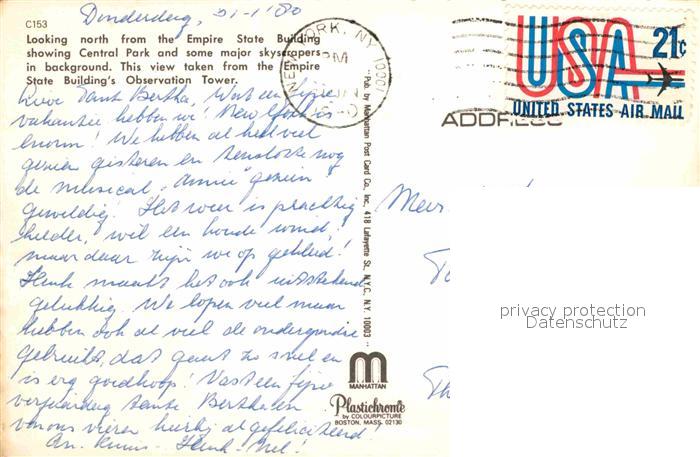 Donderdag, 31-1-'80
C153
Looking north from the Empire State Building
showing Central Park and some major skyscrapers
in background. This view taken from the Empire
State Building's Observation Tower.
Lieve Tante Bertha, Wat een fijne
vakantie hebben we! New York is
enorm! We hebben al heel veel
gezien gisteren en tenslotte nog
de musical "Annie" gezien!
geweldig! Het weer is prachtig
helder, wel een koude wind,
maar daar zijn we op gekleed!
Henk maakt het ook uitstekend
gelukkig. We lopen veel maar
hebben ook al veel de ondergrondse
gebruikt, dat gaat zo snel en
is erg goedkoop! Vast een fijne
verjaardag tante Bertha en
van ons vieren hierbij al gefeliciteerd!
Henk - Nel!
NEW YORK, NY 10001
PM
USA 21c
UNITED STATES AIR MAIL
ADDRESS
Pub. by Manhattan Post Card Co., Inc., 418 Lafayette St., N.Y.C. N.Y. 10003
MANHATTAN
Plastichrome
by COLOURPICTURE
BOSTON, MASS. 02130
privacy protection
Datenschutz